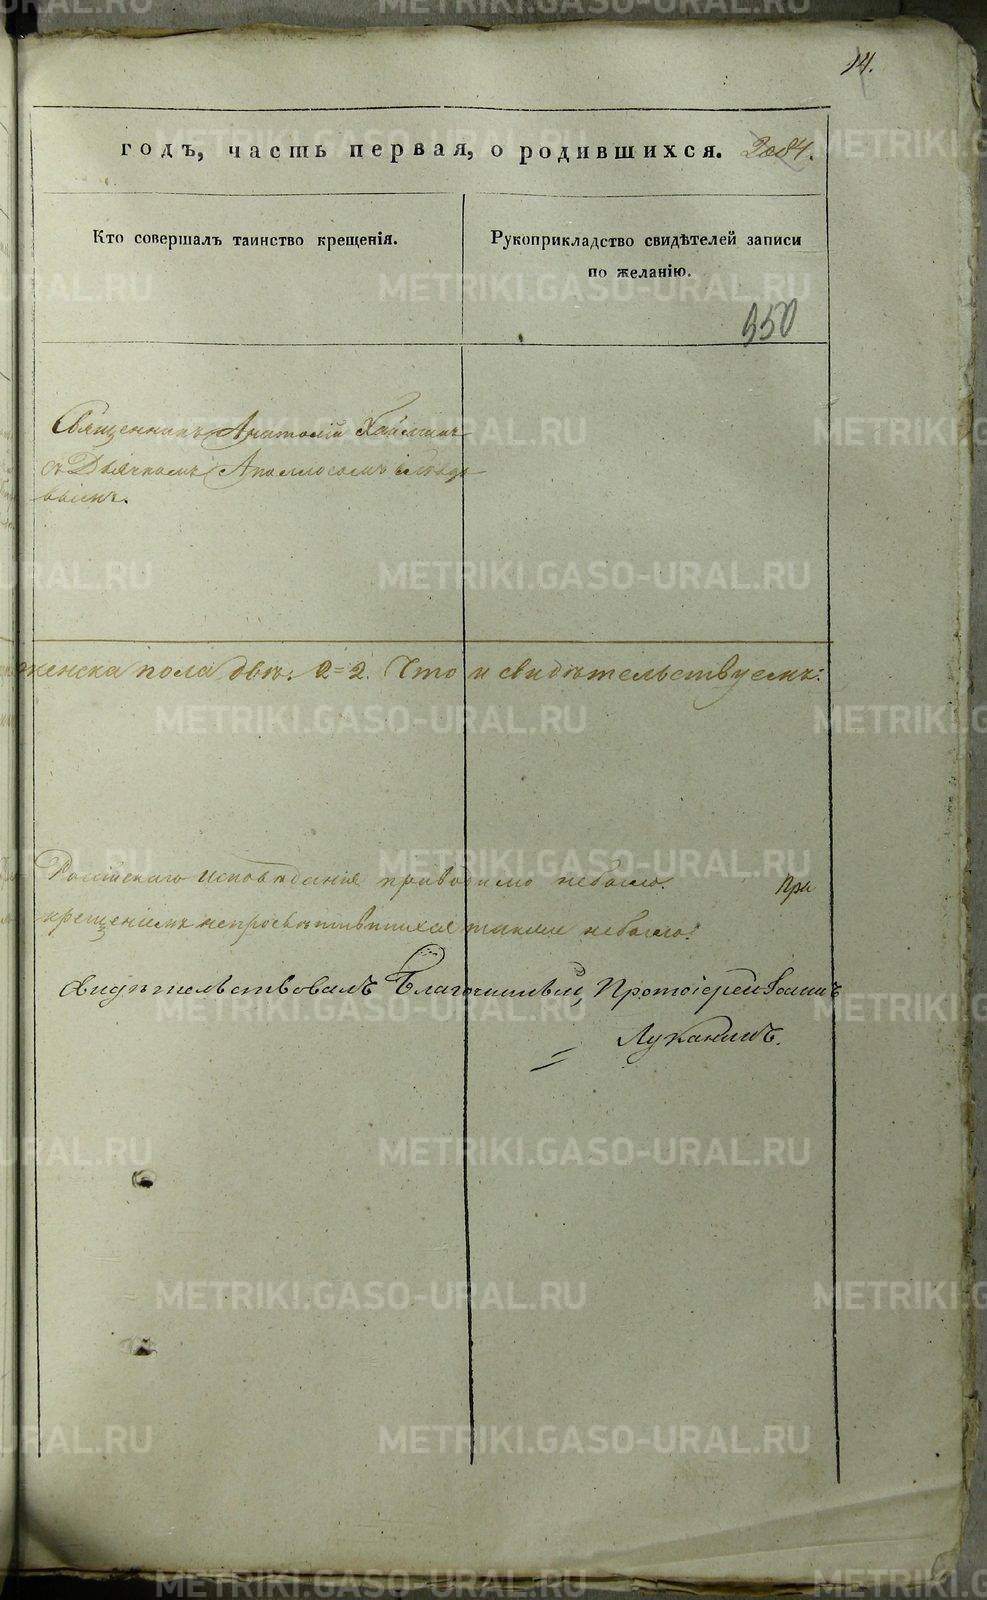 14.
годъ, часть первая, о родившихся.
Кто совершалъ таинство крещенія.
Рукоприкладство свидѣтелей записи
по желанію.
350
Священникъ Анатолій
съ Дьячкомъ Аполлосомъ
женска пола двѣ. 2=2. Что и свидѣтельствуемъ:
Россійскаго исповѣданія приводимо небыло. При
крещеніемъ непросвѣтившихся таковыхъ небыло.
Свидѣтельствовалъ Благочинный, Протоіерей Іоаннъ
Луканинъ.
METRIKI.GASO-URAL.RU